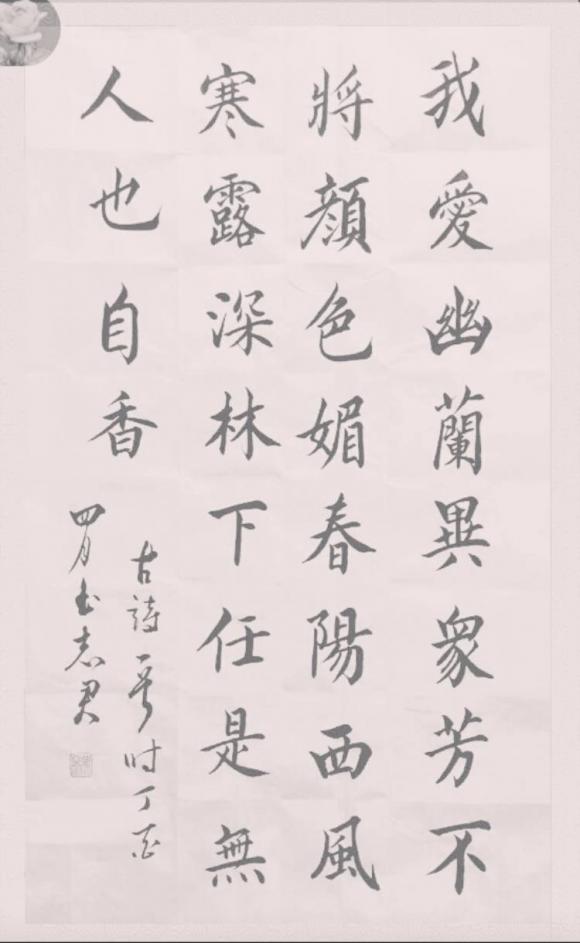 我愛幽蘭異衆芳不
將顔色媚春陽西風
寒露深林下任是無
人也自香
古詩一首时丁酉
四月書志君